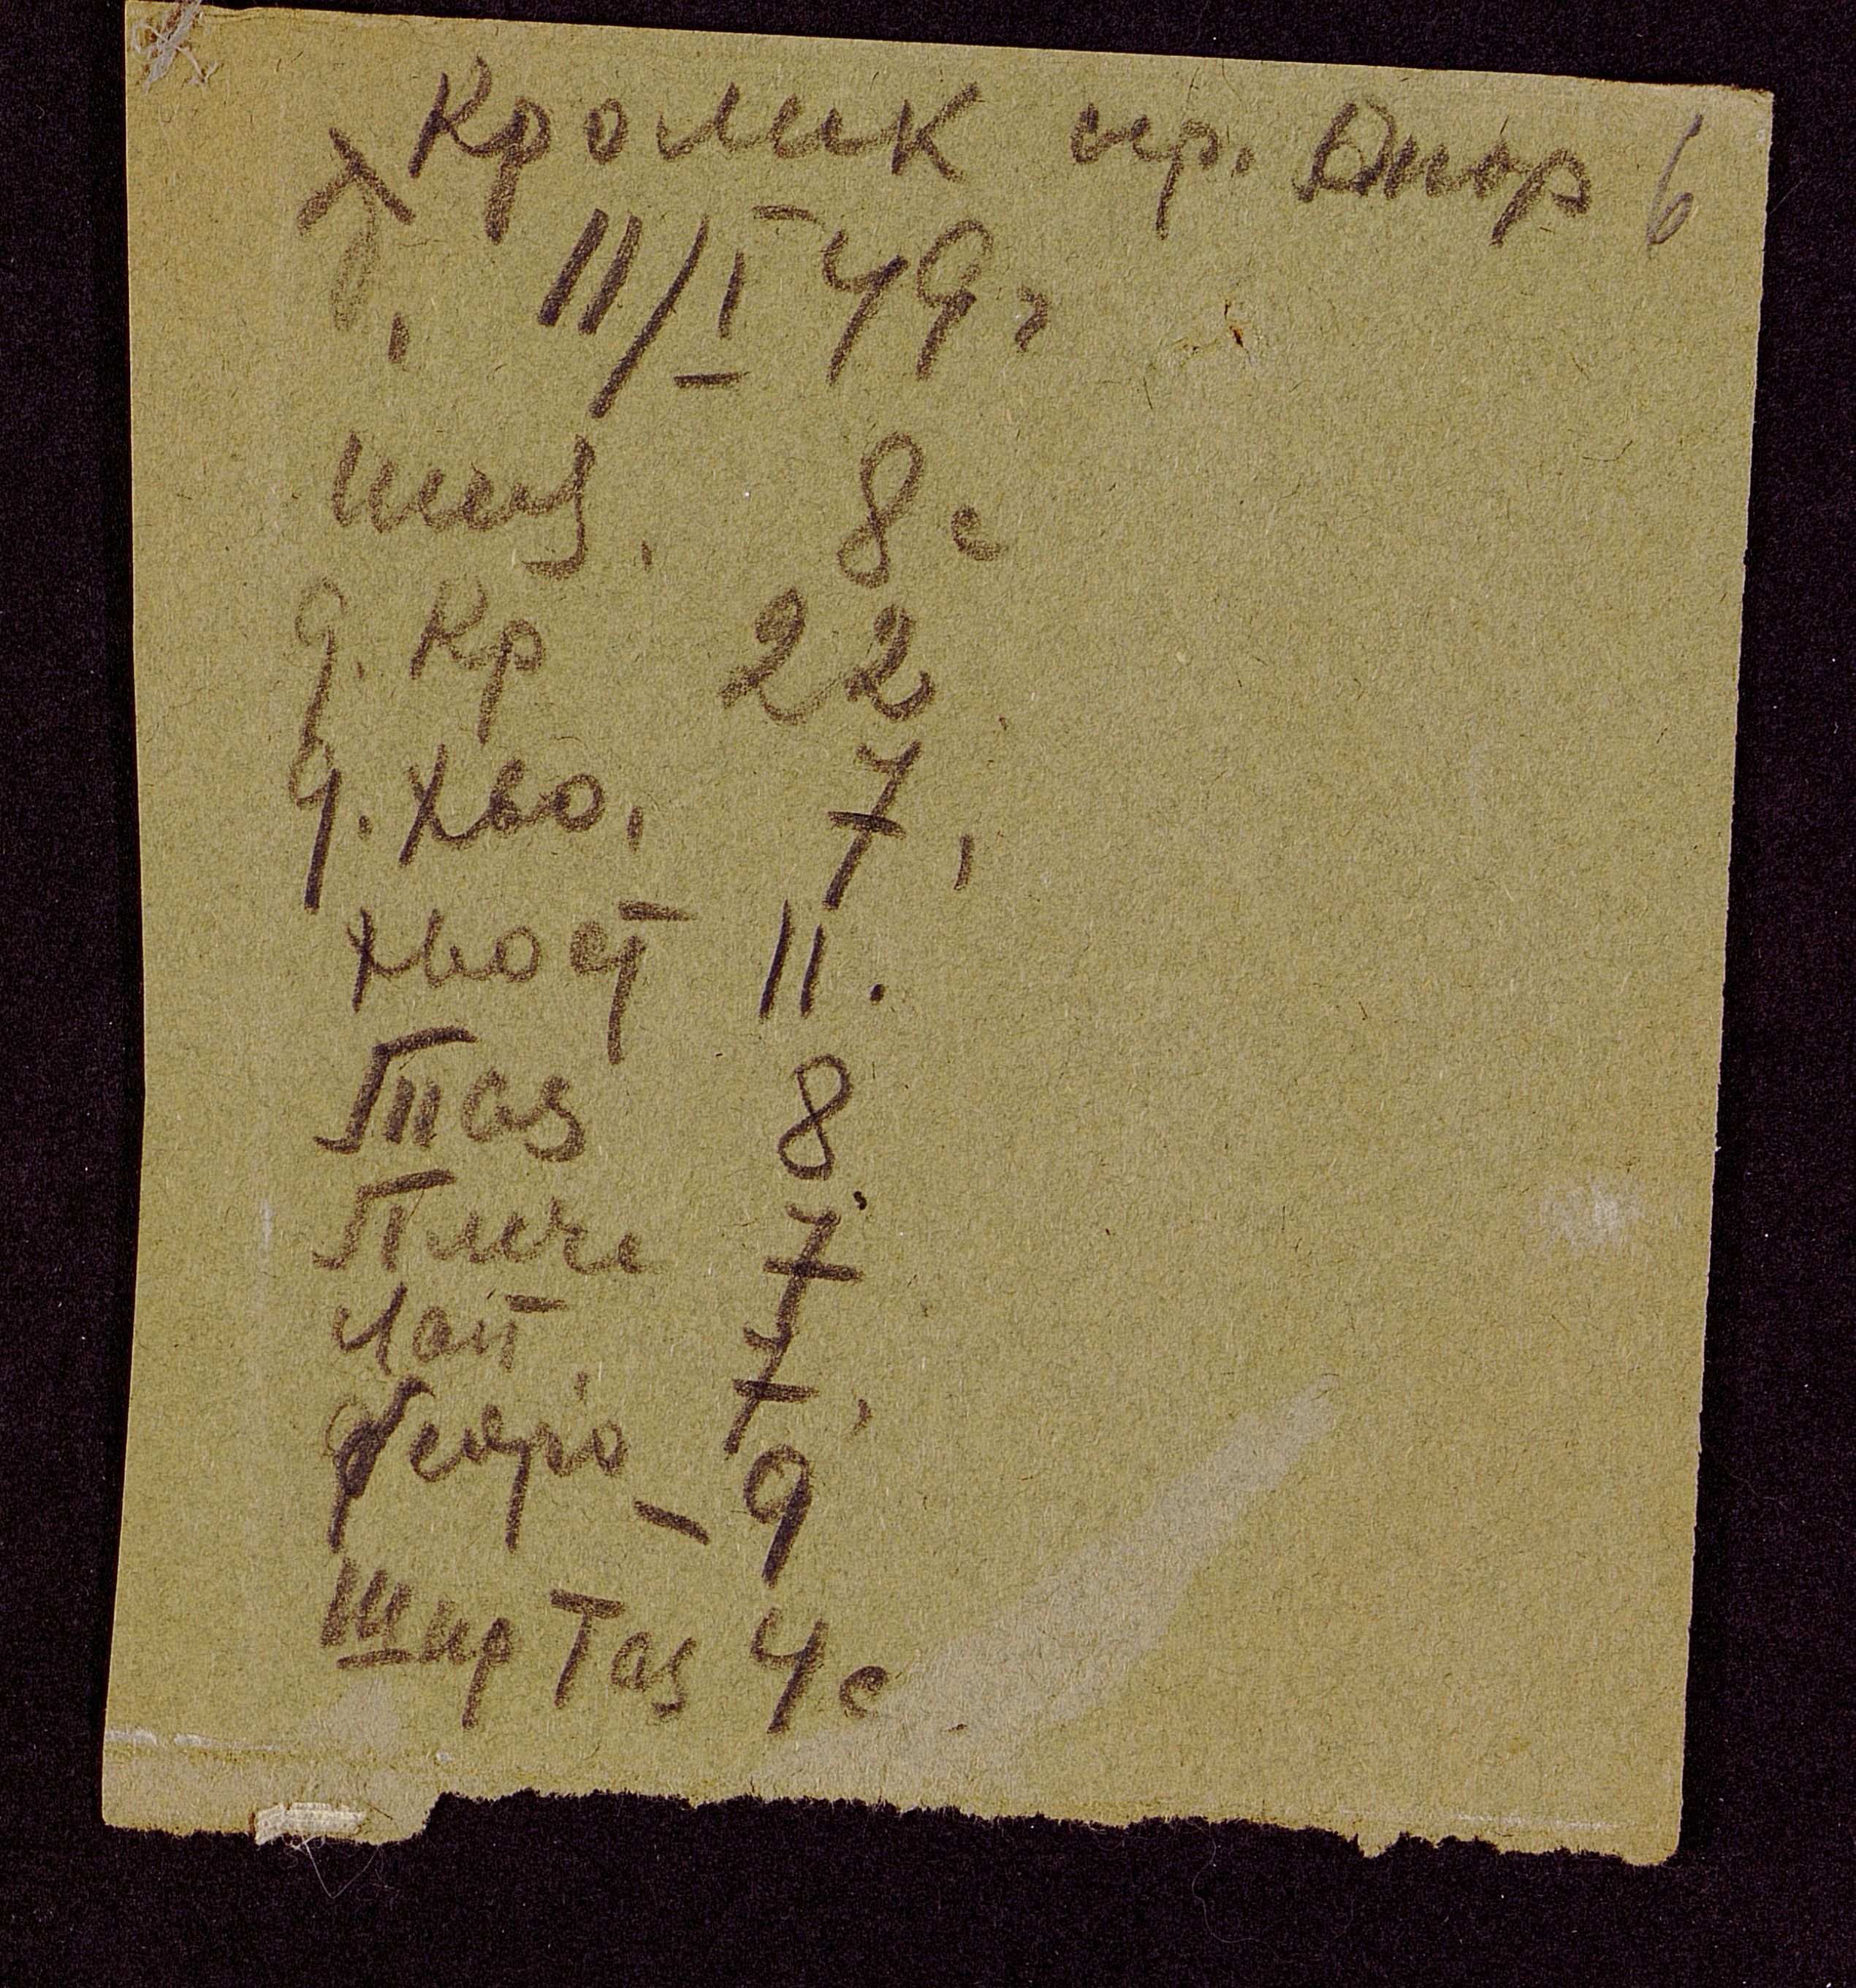 Кролик ср. Днор 6
11/I 49 г
шея. 8 с
д. кр 22
д. хво. 7,
хвост 11.
таз 8
Плече 7
Лоп. 7,
бедро – 9
Шир Таз 4 с